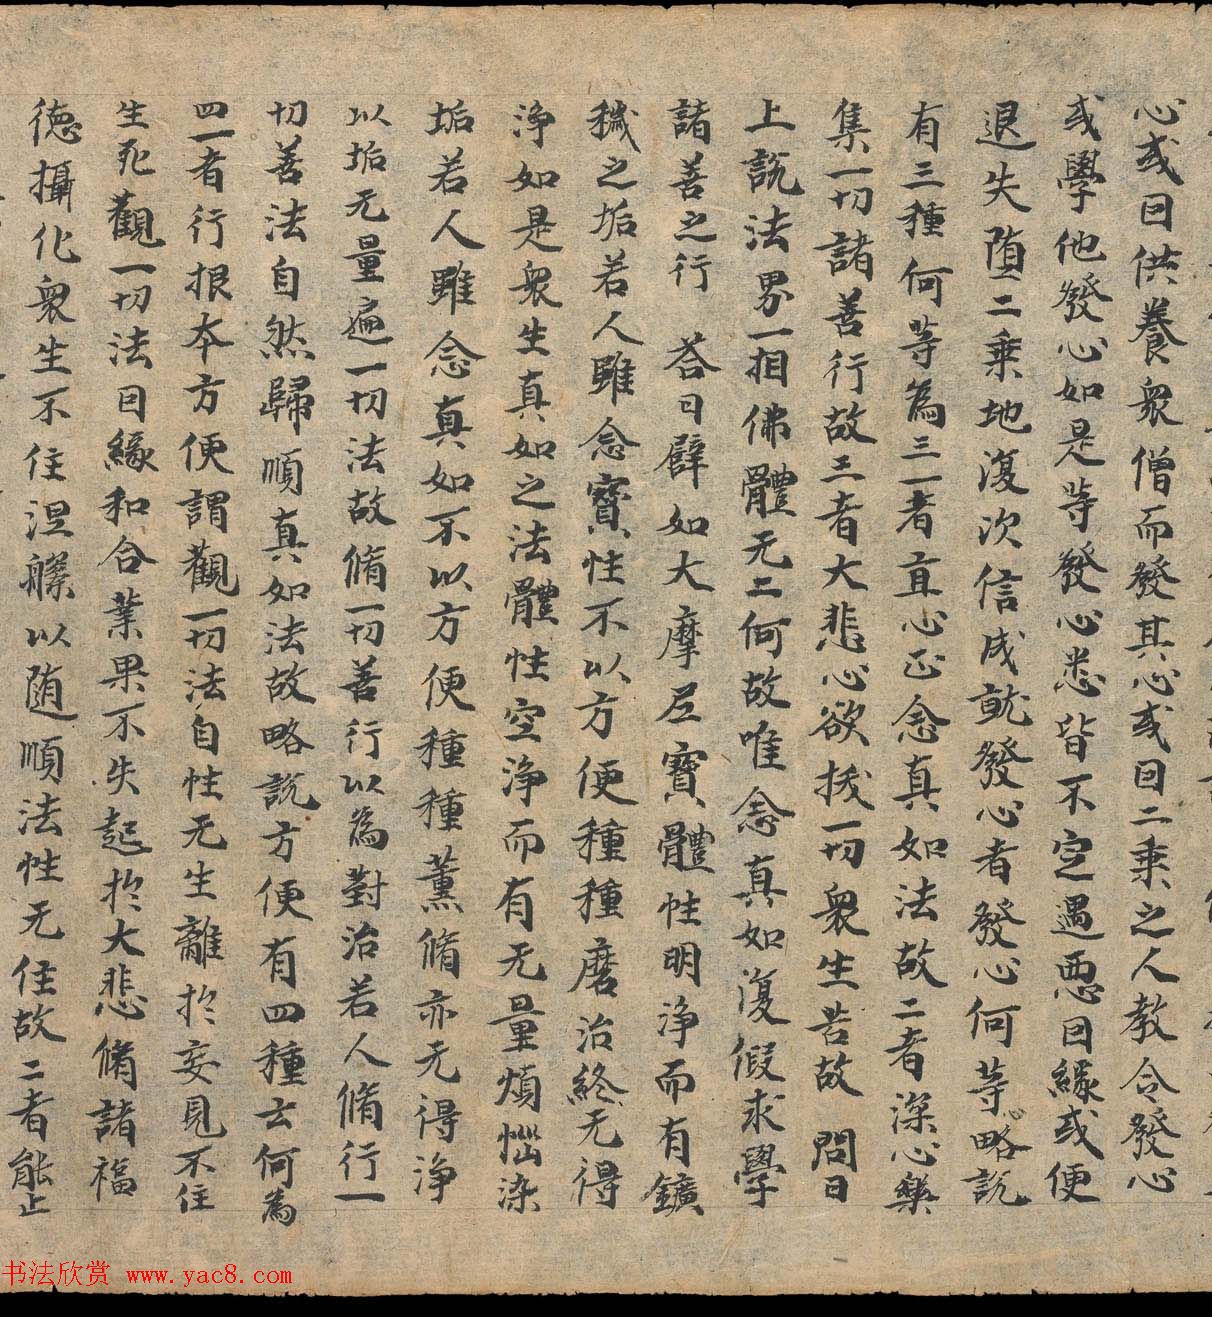 心或因供養衆僧而發其心或因二乗之人教令發心
或學他發心如是等發心悉皆不定遇惡因縁或便
退失堕二乗地復次信成就發心者發心何等略説
有三種何等為三一者直心正念真如法故二者深心樂
集一切諸善行故三者大悲心欲拔一切衆生苦故 問曰
上説法界一相佛體无二何故唯念真如復假求學
諸善之行 荅曰辟如大摩尼寶體性明淨而有鑛
穢之垢若人雖念寶性不以方便種種磨治終无得
淨如是衆生真如之法體性空淨而有无量煩惱染
垢若人雖念真如不以方便種種薰脩亦无得淨
以垢无量遍一切法故脩一切善行以為對治若人脩行一
切善法自然歸順真如法故略説方便有四種云何為
四一者行根本方便謂觀一切法自性无生離於妄見不住
生死觀一切法因縁和合業果不失起於大悲脩諸福
德攝化衆生不住涅槃以随順法性无住故二者能止
书法欣赏 www.yac8.com